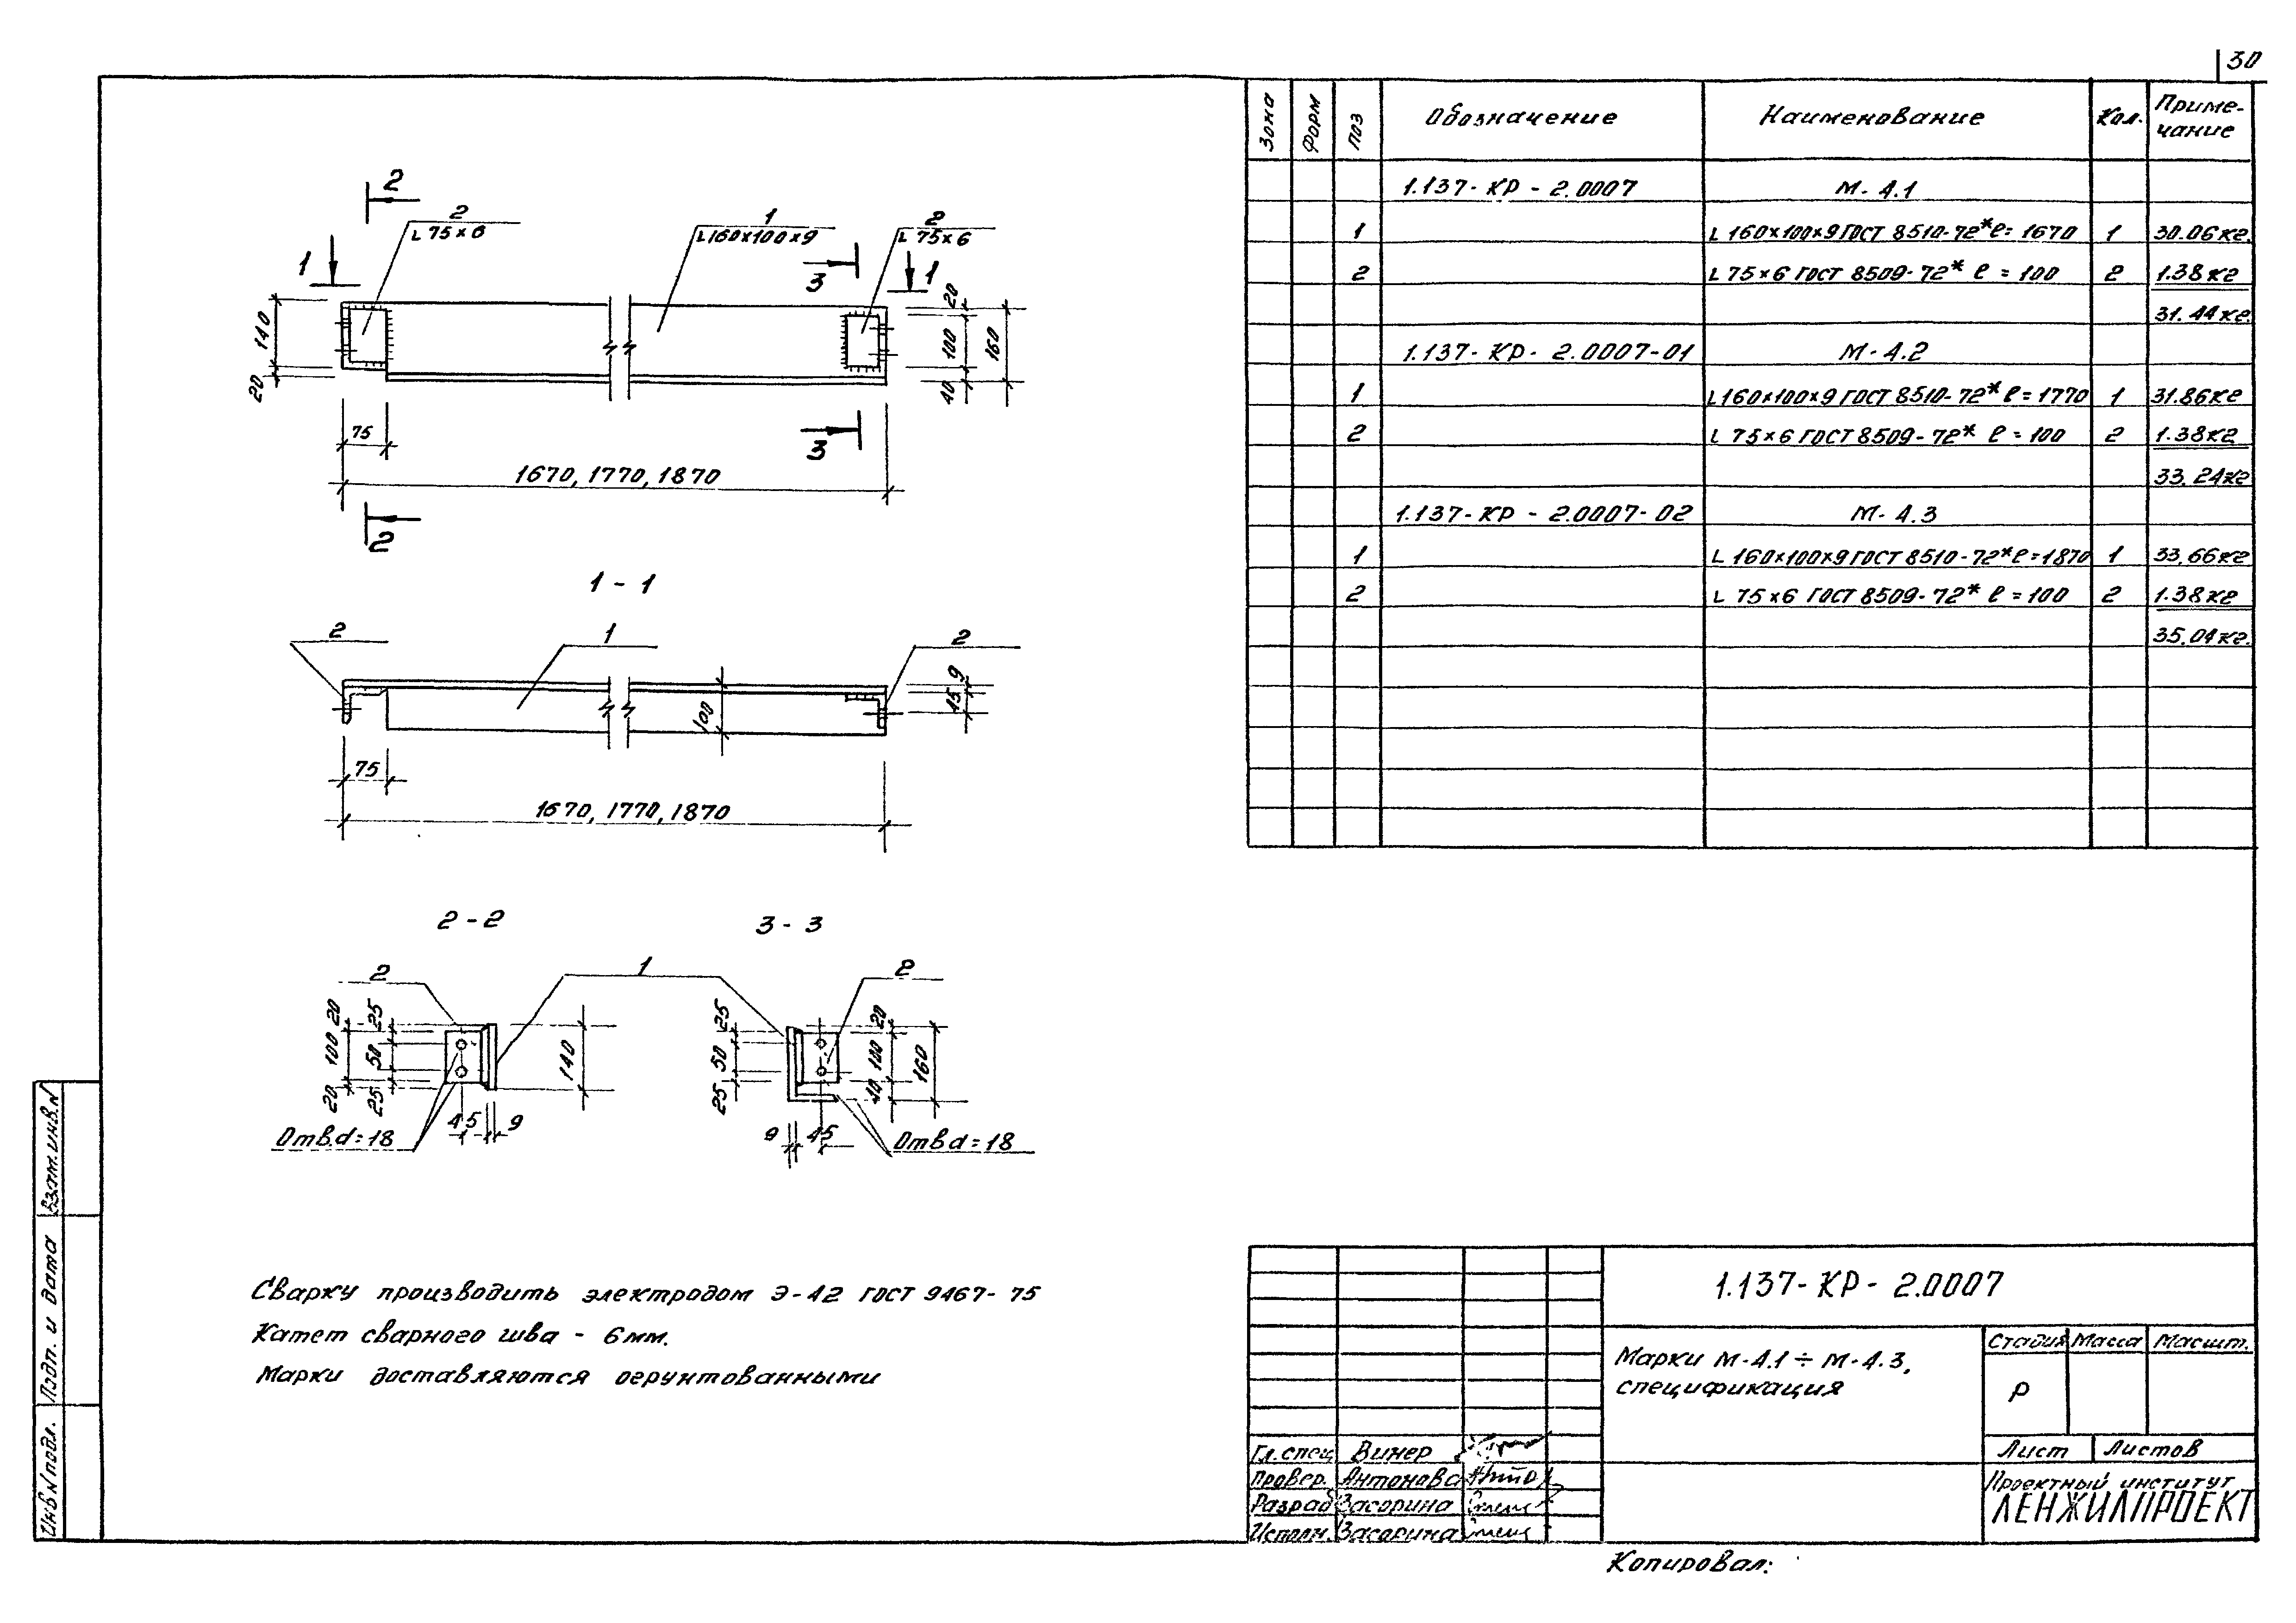 30
Зона Форм Поз Обозначение Наименование Кол. Приме-
чание
1.137-КР-2.0007 М-4.1
1 L 160×100×9 ГОСТ 8510-72* ℓ=1670 1 30.06кг.
2 L 75×6 ГОСТ 8509-72* ℓ=100 2 1.38кг
31.44кг.
1.137-КР-2.0007-01 М-4.2
1 L 160×100×9 ГОСТ 8510-72* ℓ=1770 1 31.86кг
2 L 75×6 ГОСТ 8509-72* ℓ=100 2 1.38кг
33.24кг
1.137-КР-2.0007-02 М-4.3
1 L 160×100×9 ГОСТ 8510-72* ℓ=1870 1 33,66кг
2 L 75×6 ГОСТ 8509-72* ℓ=100 2 1.38кг
35.04кг.
2
2
L 75×6
1
L 160×100×9
2
L 75×6
1
3
1
140
20
20
100
40
160
75
3
1670, 1770, 1870
2
1 - 1
2
1
2
9
45
100
75
1670, 1770, 1870
2 - 2
3 - 3
2
1
2
20
100
20
25
50
25
140
45
9
Отв.d=18
25
50
25
20
100
40
160
9
45
Отв d=18
Сварку производить электродом Э-42 ГОСТ 9467-75
Катет сварного шва - 6мм.
Марки доставляются огрунтованными
Взам.инв.№
Подп. и дата
Инв№подл.
1.137-КР-2.0007
Марки М-4.1÷М-4.3,
спецификация
Стадия Масса Масшт.
Р
Лист Листов
Проектный институт
ЛЕНЖИЛПРОЕКТ
Гл.спец Винер
Провер. Антонова
Разраб Засорина
Исполн. Засорина
Копировал: